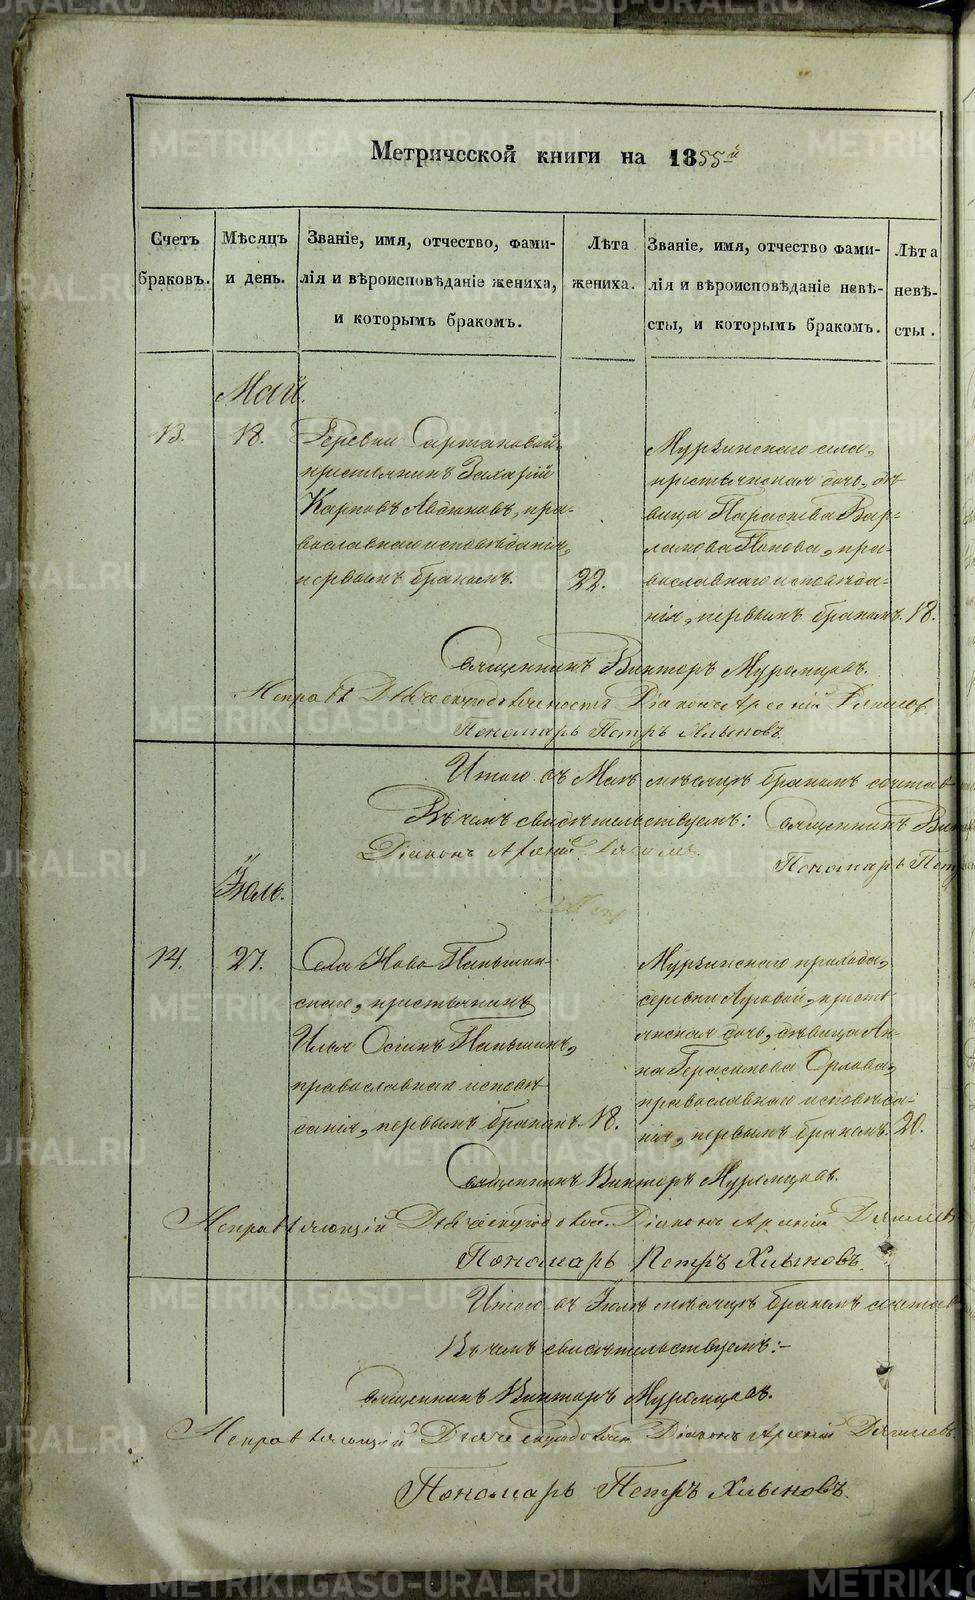 Метрической книги на 1855й
Счетъ браковъ.
Мѣсяцъ и день.
Званіе, имя, отчество, фами-
лія и вѣроисповѣданіе жениха,
и которымъ бракомъ.
Лѣта жениха.
Званіе, имя, отчество фами-
лія и вѣроисповѣданіе невѣ-
сты, и которымъ бракомъ.
Лѣта невѣ-
сты.
Май.
13.
18.
Деревни
крестьянинъ Захарій
Карповъ Авдюковъ, пра-
вославнаго исповѣданія,
первымъ бракомъ.
22.
Мурзинскаго села,
крестьянская дочь, дѣ-
вица Параскева Вар-
ламова Попова, пра-
вославнаго исповѣда-
нія, первымъ бракомъ.
18.
Священникъ Викторъ
Діаконъ Арсеній
Пономарь Петръ Хлыновъ.
Итого въ Маѣ мѣсяцѣ бракомъ сочетав
Въ чемъ свидѣтельствуемъ: Священникъ Вик
Діаконъ Арсеній
Пономарь Пет
Іюль.
14.
27.
Села Ново-Паньшин-
скаго, крестьянинъ
Илья Осипъ Паньшинъ,
православнаго исповѣ
данія, первымъ бракомъ
18.
Мурзинскаго прихода,
деревни Луговой, кресть-
янская дочь, дѣвица Ан-
на Герасимова Орлова,
православнаго исповѣда-
нія, первымъ бракомъ.
20.
Священникъ Викторъ
Діаконъ Арсеній
Пономарь Петръ Хлыновъ.
Итого въ Іюлѣ мѣсяцѣ бракомъ сочетав
Въ чемъ свидѣтельствуемъ:-
Священникъ Викторъ
Діаконъ Арсеній
Пономарь Петръ Хлыновъ.
METRIKI.GASO-URAL.RU